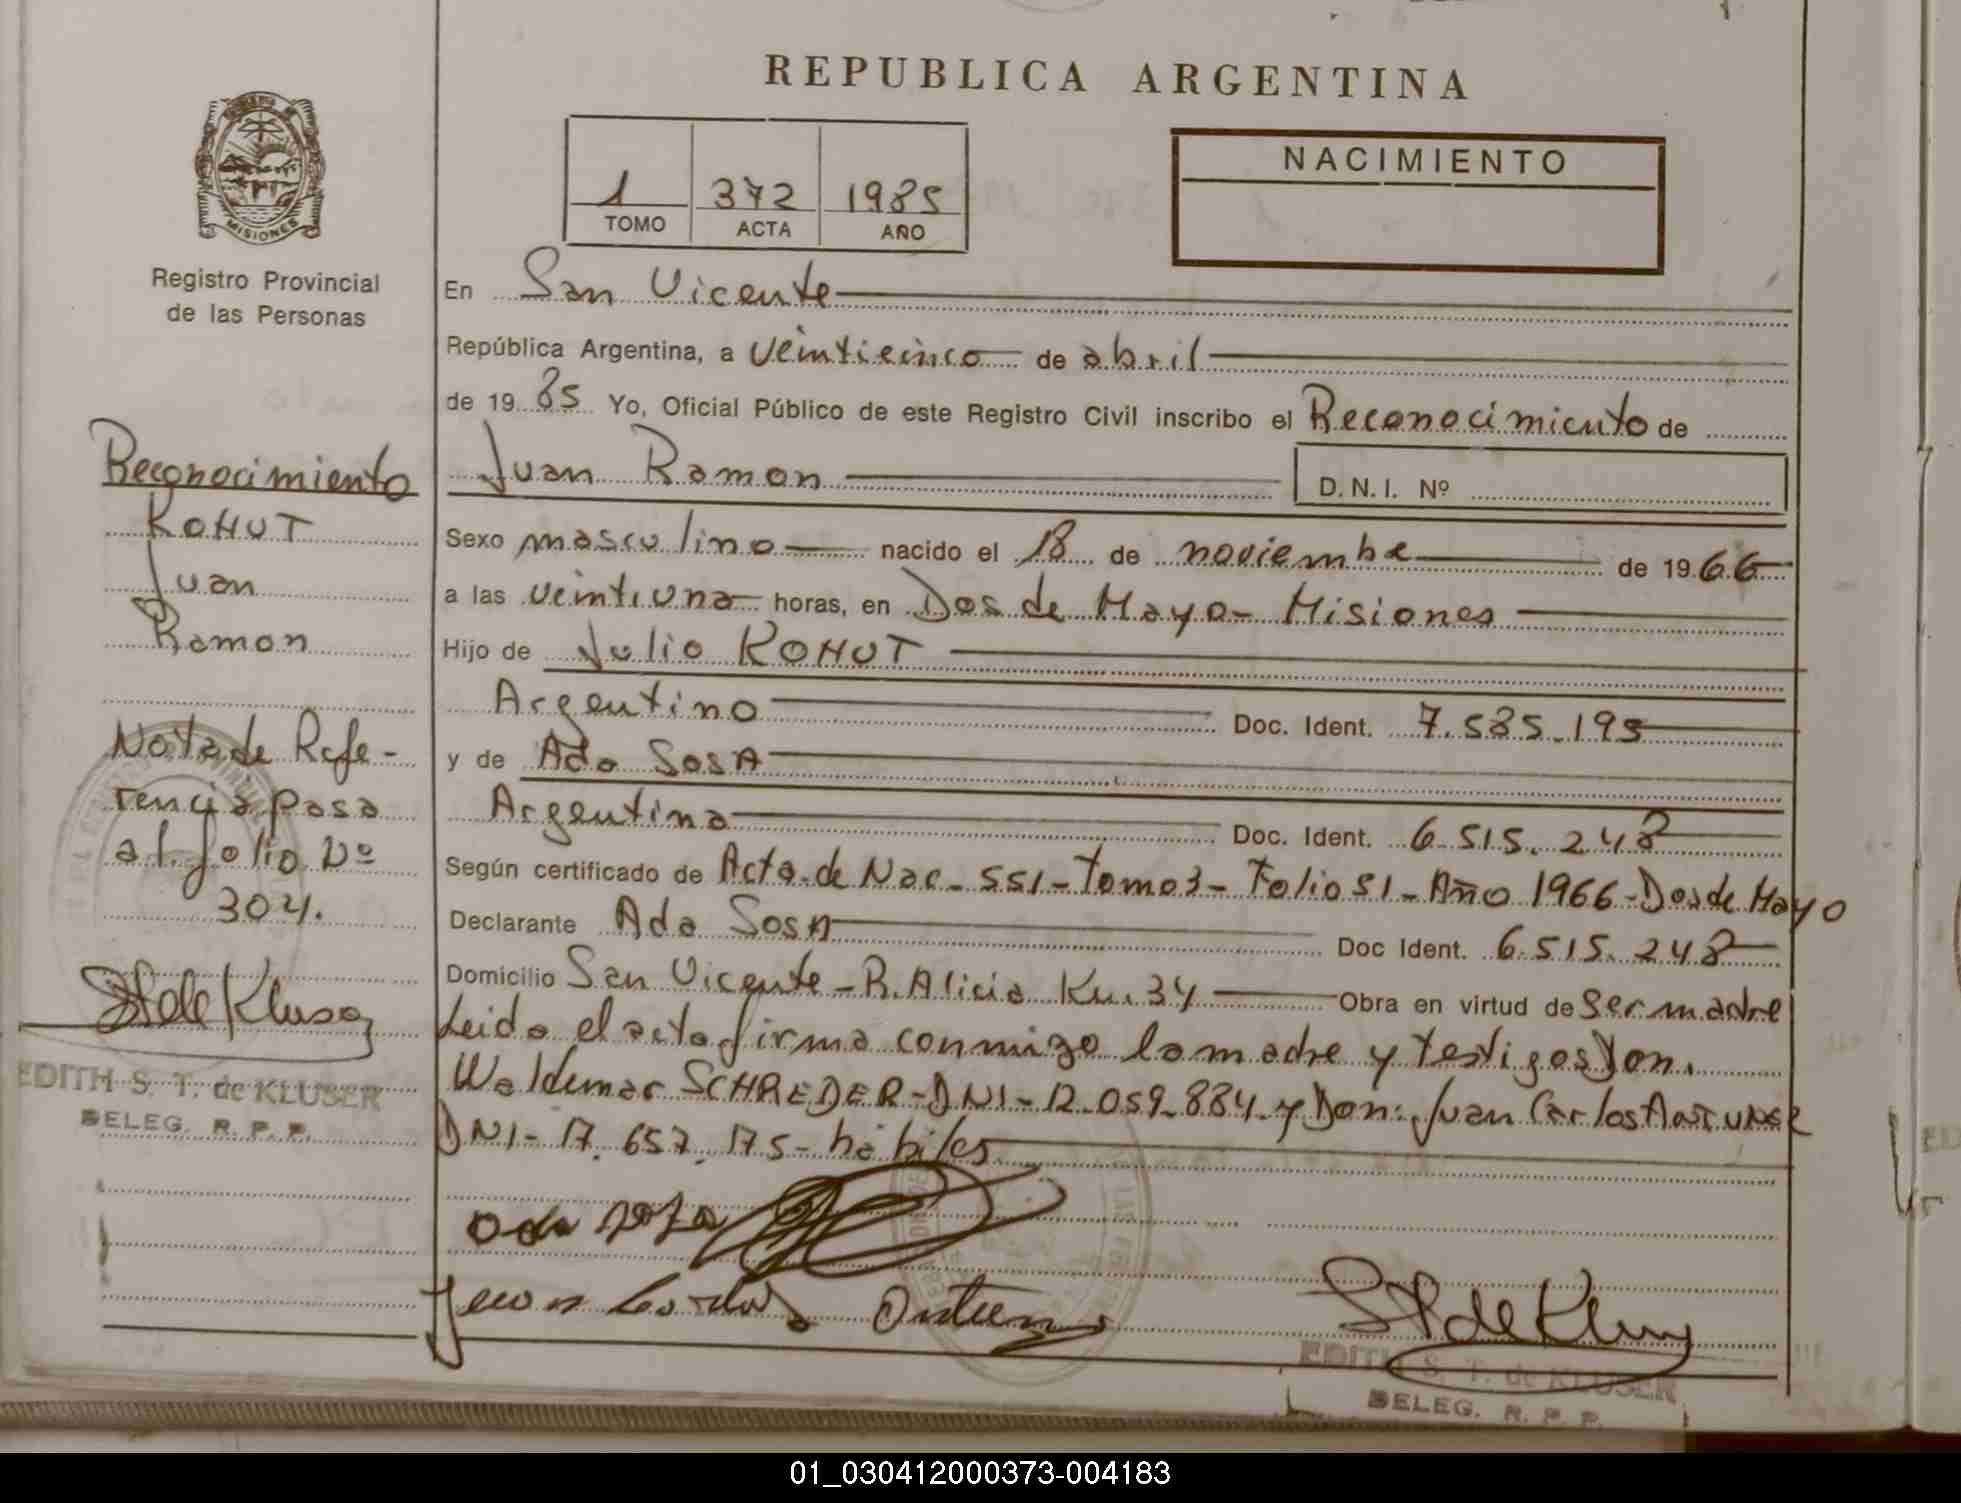 REPUBLICA ARGENTINA
NACIMIENTO
1 372 1985
TOMO ACTA AÑO
MISIONES
Registro Provincial
de las Personas
En San Vicente
República Argentina, a veinticinco de abril
de 1985 Yo, Oficial Público de este Registro Civil inscribo el Reconocimiento de
Juan Ramon D.N.I. Nº
Sexo masculino nacido el 18 de noviembre de 1966
a las veintiuna horas, en Dos de Mayo- Misiones
Hijo de Julio KOHUT
Argentino Doc. Ident. 7.585.195
y de Ada SOSA
Argentina Doc. Ident. 6.515.248
Según certificado de Acta de Nac- 551- Tomo 3- Folio 51- Año 1966- Dos de Mayo
Declarante Ada SOSA Doc Ident. 6.515.248
Domicilio San Vicente - R. Alicia Km. 34 Obra en virtud de ser madre
Leido el acta firma conmigo la madre y testigos Don.
Waldemar SCHREDER- DNI- 12.059.884 y Don: Juan Carlos ANTUNEZ
DNI- 17.657.175- hábiles
Juan Carlos
EDITH S. T. de KLUSER
DELEG. R. P. P.
Reconocimiento
KOHUT
Juan
Ramon
Nota de Refe-
rencia pasa
al folio Nº
304.
EDITH S. T. de KLUSER
DELEG. R. P. P.
01_030412000373-004183